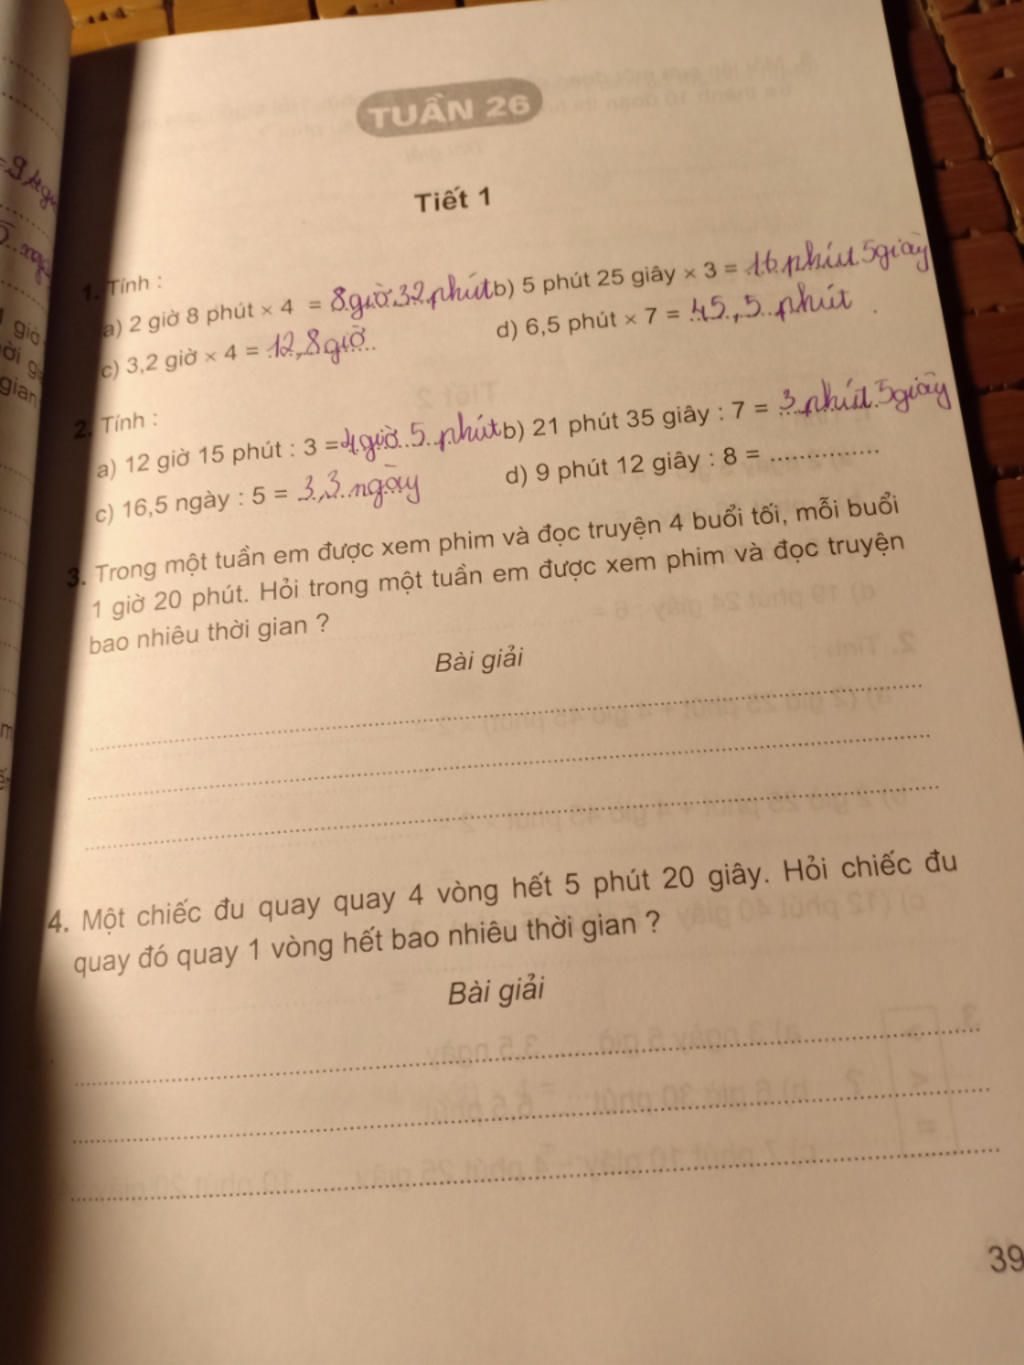 TUẦN 26
Tiết 1
1. Tính :
a) 2 giờ 8 phút × 4 = 8 giờ 32 phút b) 5 phút 25 giây × 3 = 16 phút 5 giây
c) 3,2 giờ × 4 = 12,8 giờ d) 6,5 phút × 7 = 45,5 phút
2. Tính :
a) 12 giờ 15 phút : 3 = 4 giờ 5 phút b) 21 phút 35 giây : 7 = 3 phút 5 giây
c) 16,5 ngày : 5 = 3,3 ngày d) 9 phút 12 giây : 8 = ................
3. Trong một tuần em được xem phim và đọc truyện 4 buổi tối, mỗi buổi
1 giờ 20 phút. Hỏi trong một tuần em được xem phim và đọc truyện
bao nhiêu thời gian ?
Bài giải
4. Một chiếc đu quay quay 4 vòng hết 5 phút 20 giây. Hỏi chiếc đu
quay đó quay 1 vòng hết bao nhiêu thời gian ?
Bài giải
39